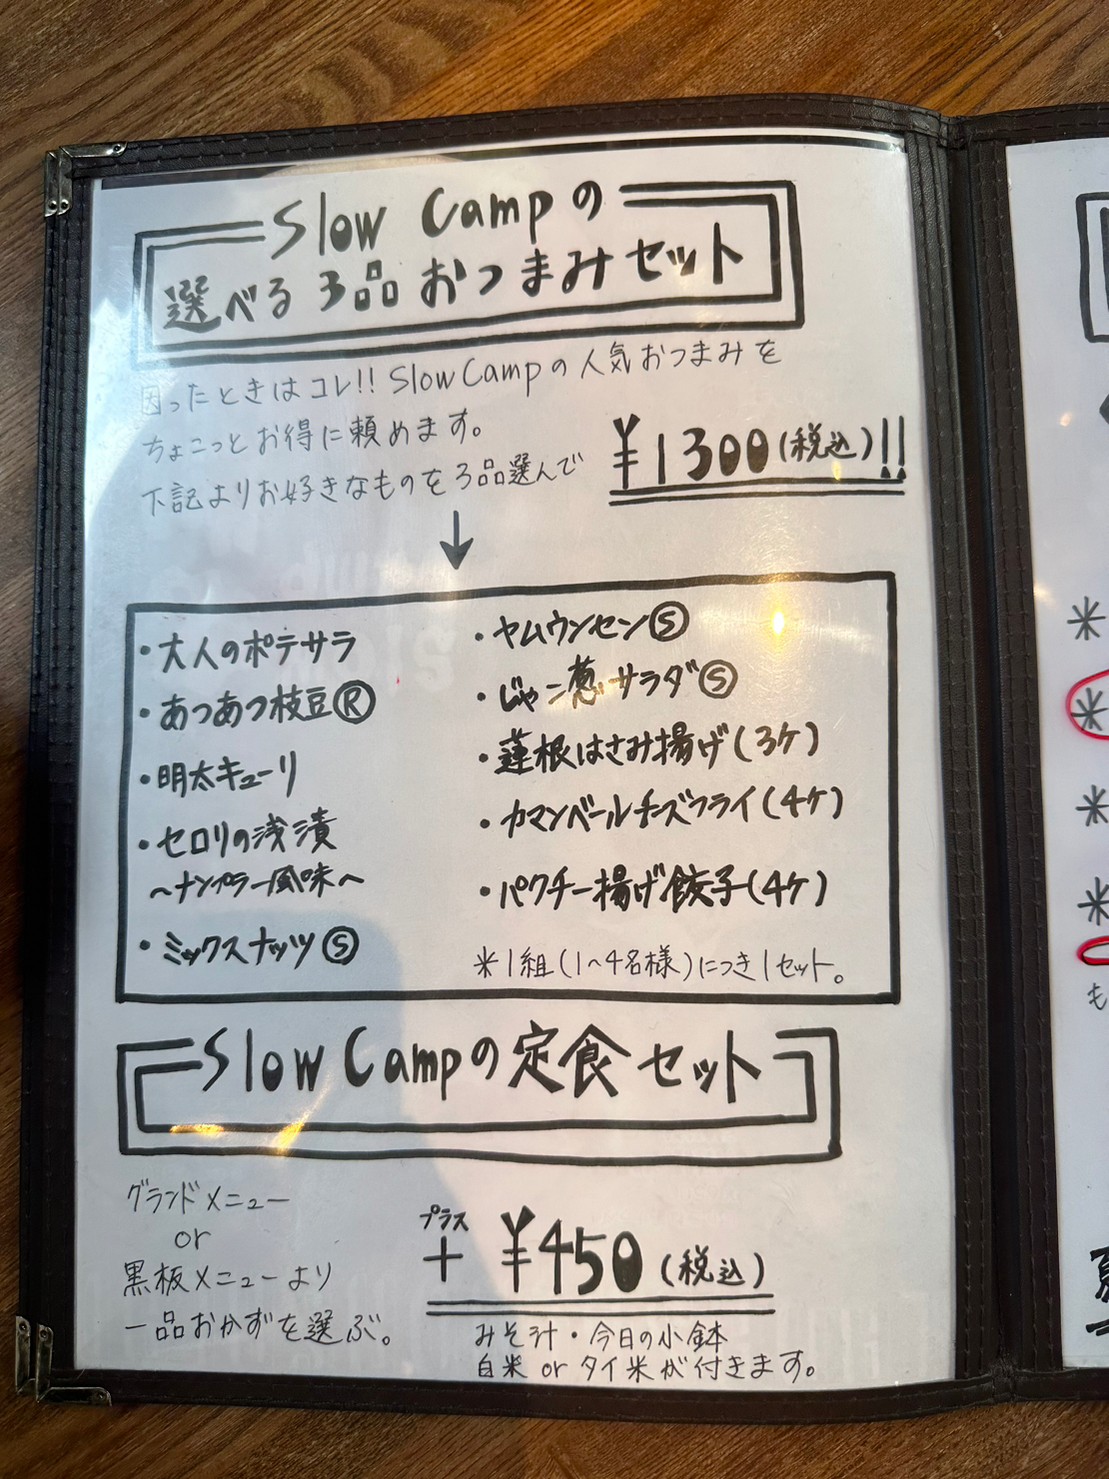 Slow Campの
選べる3品おつまみセット
困ったときはコレ!! Slow Campの人気おつまみを
ちょこっとお得に頼めます。
下記よりお好きなものを3品選んで
¥1300(税込)!!
↓
・大人のポテサラ
・あつあつ枝豆Ⓡ
・明太キューリ
・セロリの浅漬
〜ナンプラー風味〜
・ミックスナッツⓈ
・ヤムウンセンⓈ
・じゃこ葱サラダⓈ
・蓮根はさみ揚げ(3ケ)
・カマンベールチーズフライ(4ケ)
・パクチー揚げ餃子(4ケ)
*1組(1〜4名様)につき1セット。
Slow Campの定食セット
グランドメニュー
or
黒板メニューより
一品おかずを選ぶ。
プラス
+ ¥450(税込)
みそ汁・今日の小鉢
白米 or タイ米が付きます。
*
*
*
*
も